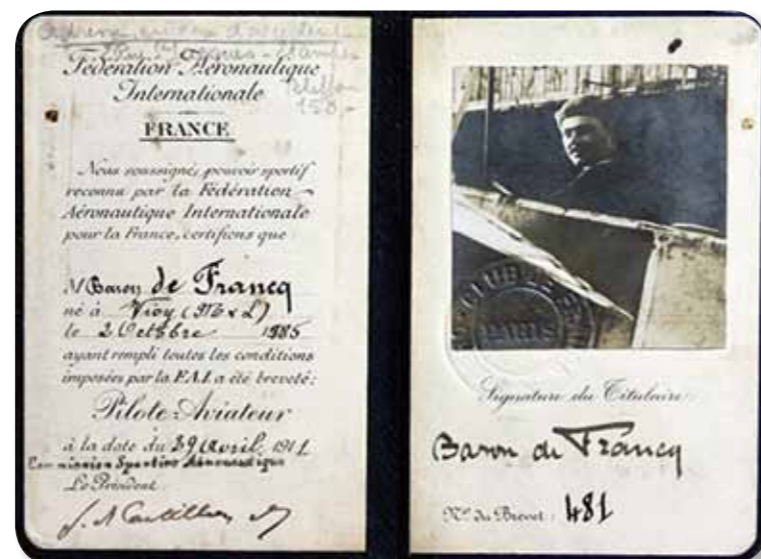 Adresse en cas d'accident
Fédération Aéronautique
Internationale
FRANCE
Nous soussignés, pouvoir sportif
reconnu par la Fédération
Aéronautique Internationale
pour la France, certifions que
M Baron de Francq
né à (M & L)
le 2 Octobre 1885
ayant rempli toutes les conditions
imposées par la F.A.I. a été breveté:
Pilote-Aviateur
à la date du 29 avril 1911
Commission Sportive Aéronautique
Le Président:
CLUB DE
PARIS
Signature du Titulaire:
Baron de Francq
No. du Brevet: 481